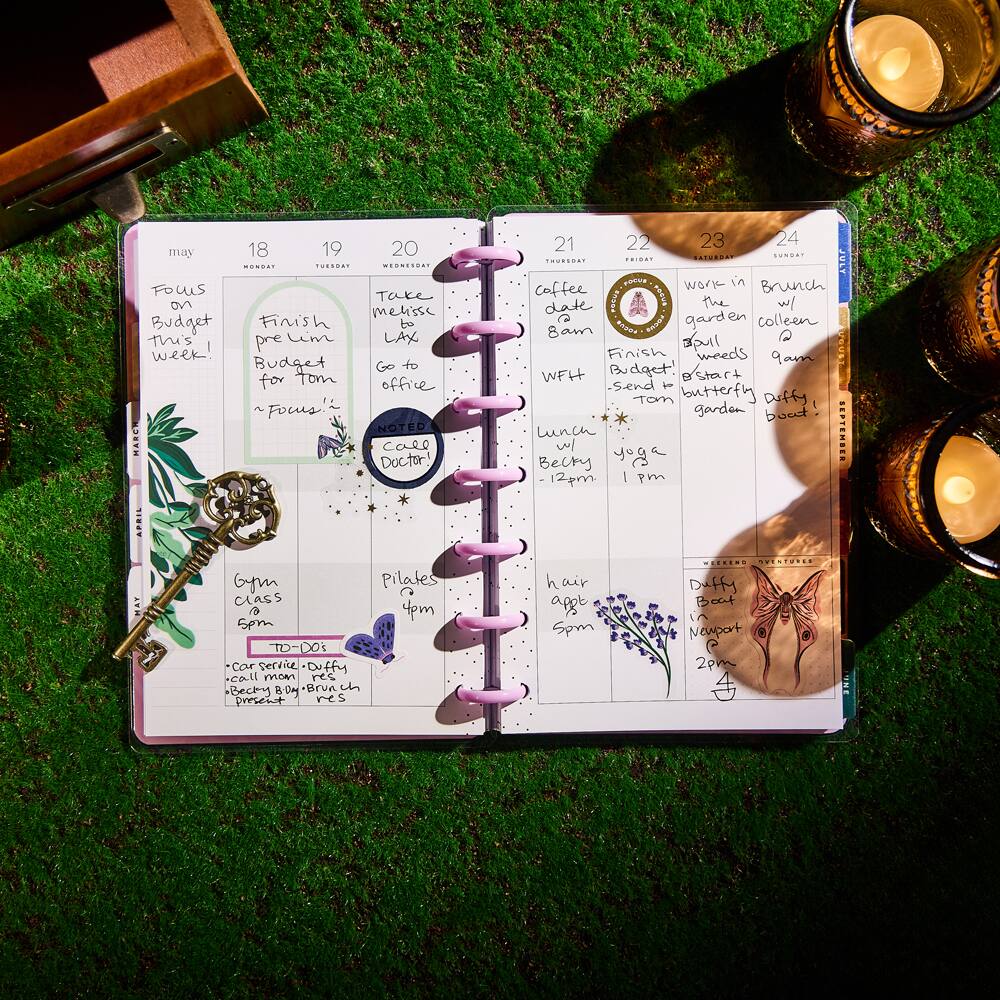 may
Focus
on
Budget
this
week!
18
MONDAY
19
TUESDAY
Finish
prelim
Budget
for Tom
~Focus!!~
Gym
class
@
5pm
TO-DO's
•Car service
•call mom
•Becky B.Day
present
•Duffy
res
•Brunch
res
20
WEDNESDAY
Take
melissa
to
LAX
Go to
office
NOTED
Call
Doctor!
Pilates
@
4pm
21
THURSDAY
coffee
date
@
8am
WFH
Lunch
w/
Becky
-12pm.
hair
appt
@
5pm
22
FRIDAY
FOCUS • FOCUS • FOCUS • FOCUS • FOCUS
Finish
Budget!
-send to
Tom
yoga
@
1pm
23
SATURDAY
work in
the
garden
pull
weeds
start
butterfly
garden
24
SUNDAY
Brunch
w/
colleen
@
9am
Duffy
boat!
WEEKEND ADVENTURES
Duffy
Boat
in
Newport
@
2pm
MARCH
APRIL
MAY
JULY
AUGUST
SEPTEMBER
JUNE